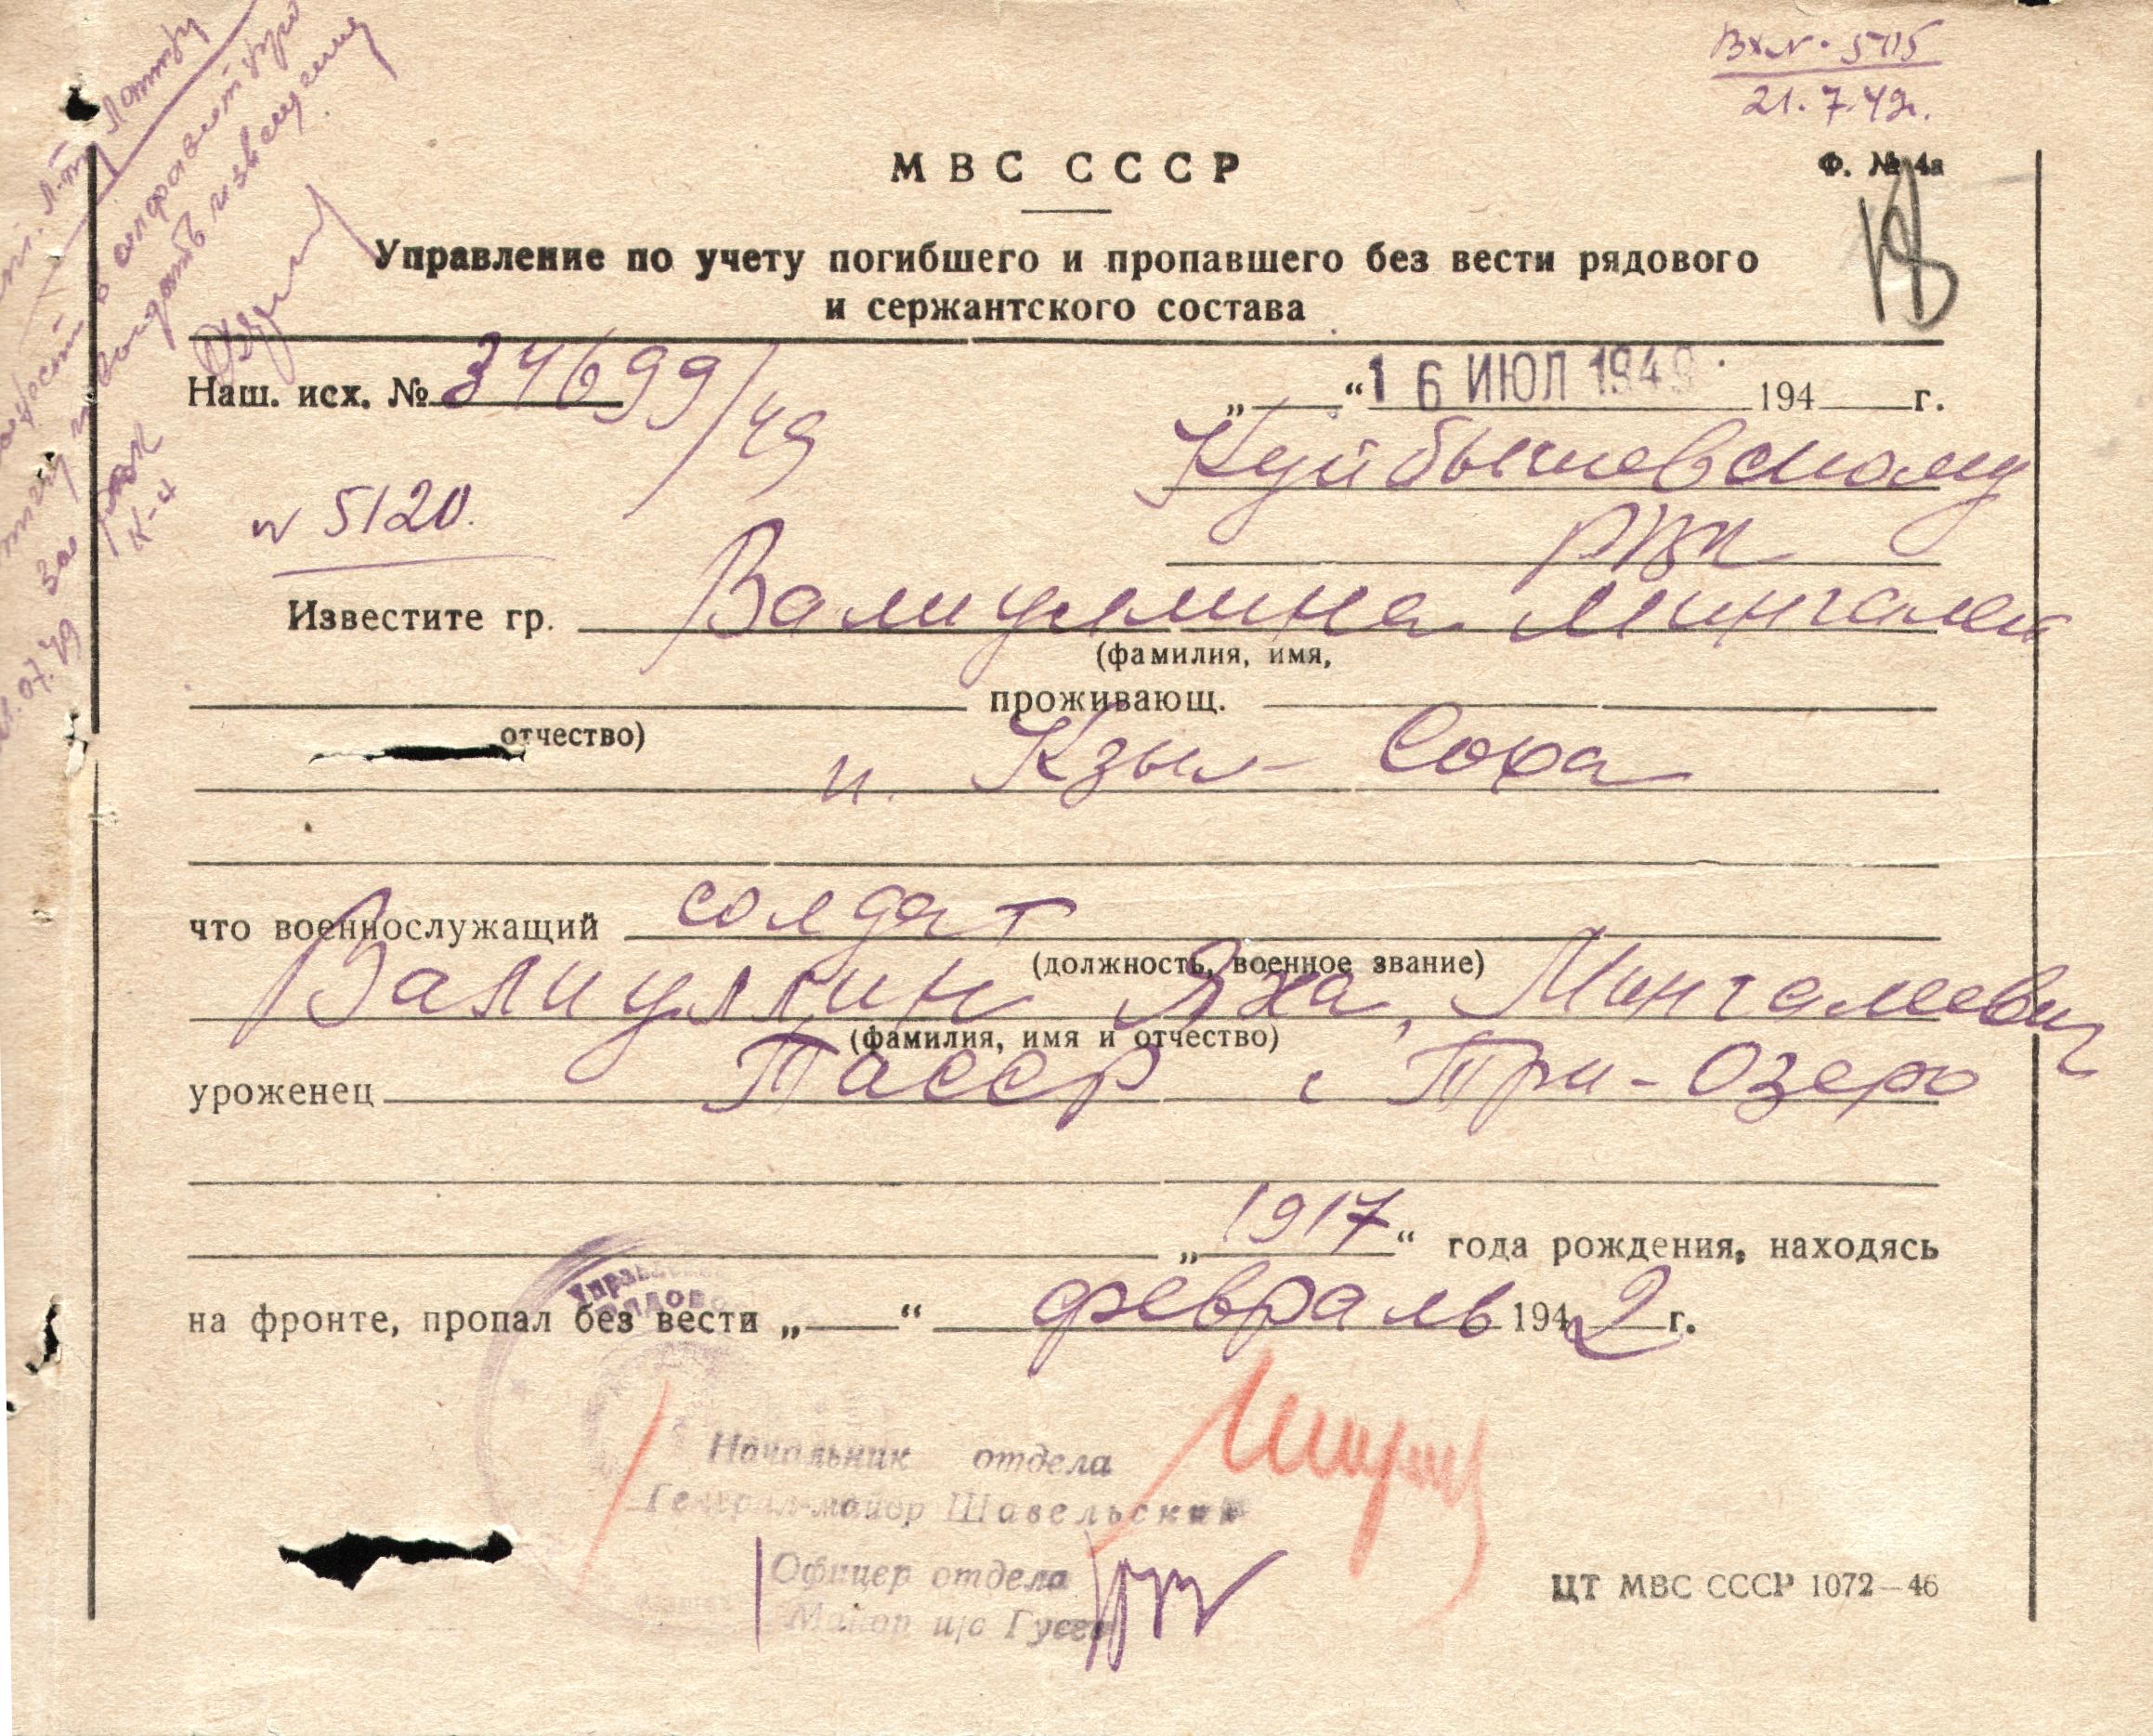 Вх № 505
21.7.49г.
МВС СССР
Ф. № 4а
Управление по учету погибшего и пропавшего без вести рядового
и сержантского состава
Наш. исх. № 34699/49
„ “ 16 ИЮЛ 1949 194 г.
Куйбышевскому
РВК
№ 5120.
Известите гр. Валиуллина Мингалея
(фамилия, имя,
проживающ.
отчество)
п. Кзыл-Соха
что военнослужащий солдат
(должность, военное звание)
Валиуллин Яха, Мингалеевич
(фамилия, имя и отчество)
уроженец ТАССР с Три-Озеро
„1917“ года рождения, находясь
на фронте, пропал без вести „ “ февраль 1942 г.
Начальник отдела
Генерал-майор Шавельский
Офицер отдела
Майор и/с Гусев
ЦТ МВС СССР 1072—46